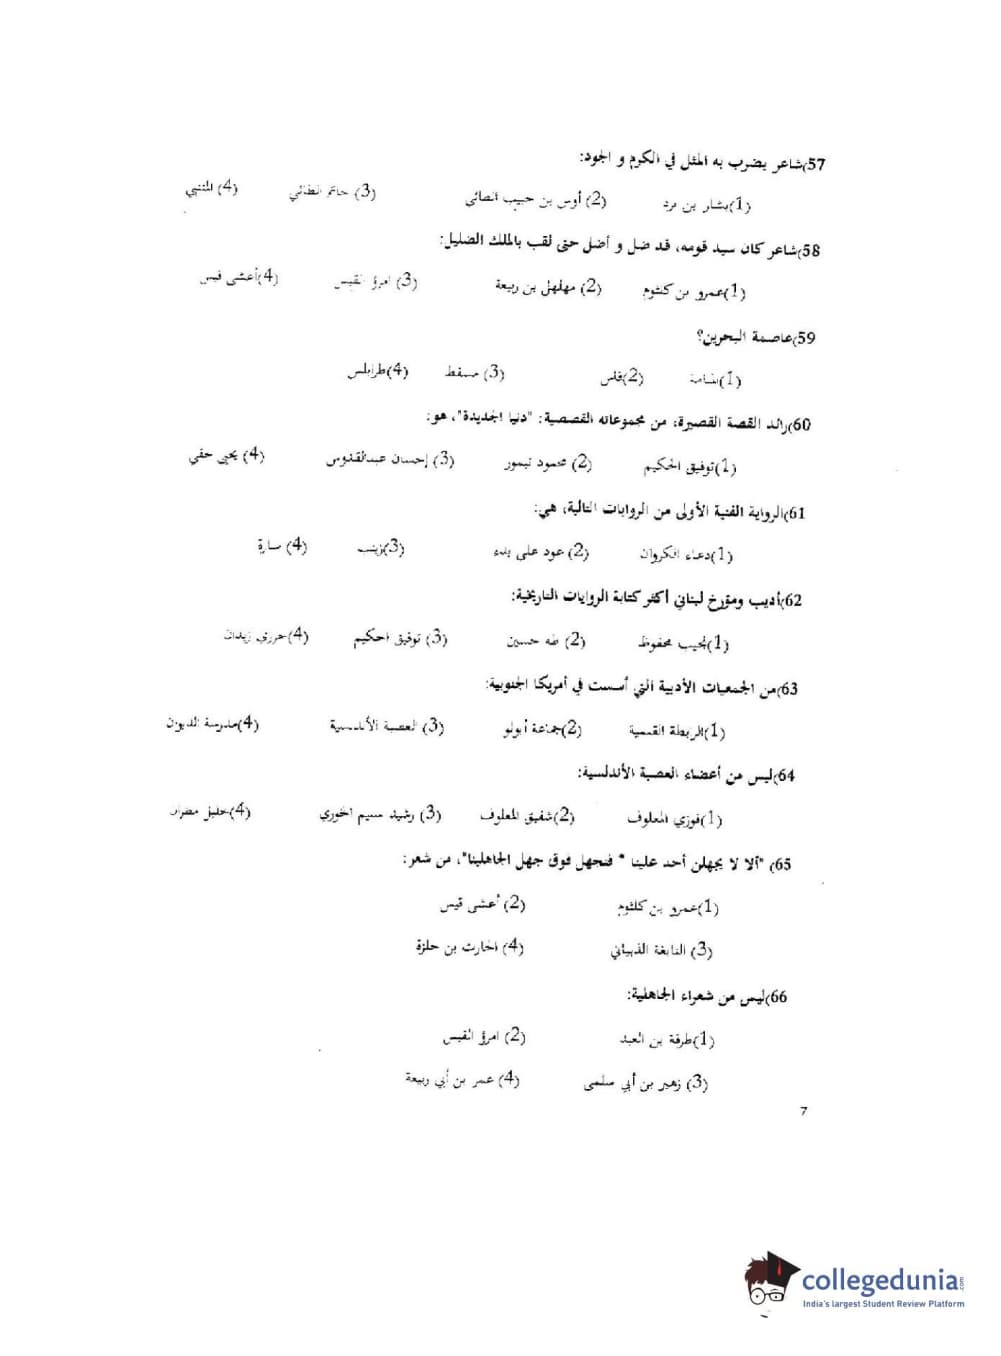 57)شاعر يضرب به المثل في الكرم و الجود:
(1)بشار بن برد (2) أوس بن حبيب الطائي (3) حاتم الطائي (4) المتنبي
58)شاعر كان سيد قومه، قد ضل و أضل حتى لقب بالملك الضليل:
(1)عمرو بن كلثوم (2) مهلهل بن ربيعة (3) امرؤ القيس (4)أعشى قيس
59)عاصمة البحرين؟
(1)المنامة (2)فاس (3) مسقط (4)طرابلس
60)رائد القصة القصيرة، من مجموعاته القصصية: "دنيا الجديدة"، هو:
(1)توفيق الحكيم (2) محمود تيمور (3) إحسان عبدالقدوس (4) يحيى حقي
61)الرواية الفنية الأولى من الروايات التالية، هي:
(1)دعاء الكروان (2) عود على بدء (3)زينب (4) سارة
62)أديب ومؤرخ لبناني أكثر كتابة الروايات التاريخية:
(1)نجيب محفوظ (2) طه حسين (3) توفيق الحكيم (4)جرجي زيدان
63)من الجمعيات الأدبية التي أسست في أمريكا الجنوبية:
(1)الربطة القلمية (2)جماعة أبولو (3) العصبة الأندلسية (4)مدرسة الديوان
64)ليس من أعضاء العصبة الأندلسية:
(1)فوزي المعلوف (2)شفيق المعلوف (3) رشيد سليم الخوري (4)خليل مطران
65) "ألا لا يجهلن أحد علينا * فنجهل فوق جهل الجاهلينا"، من شعر:
(1)عمرو بن كلثوم (2) أعشى قيس
(3) النابغة الذبياني (4) الحارث بن حلزة
66)ليس من شعراء الجاهلية:
(1)طرفة بن العبد (2) امرؤ القيس
(3) زهير بن أبي سلمى (4) عمر بن أبي ربيعة
7
collegedunia.com
India's largest Student Review Platform